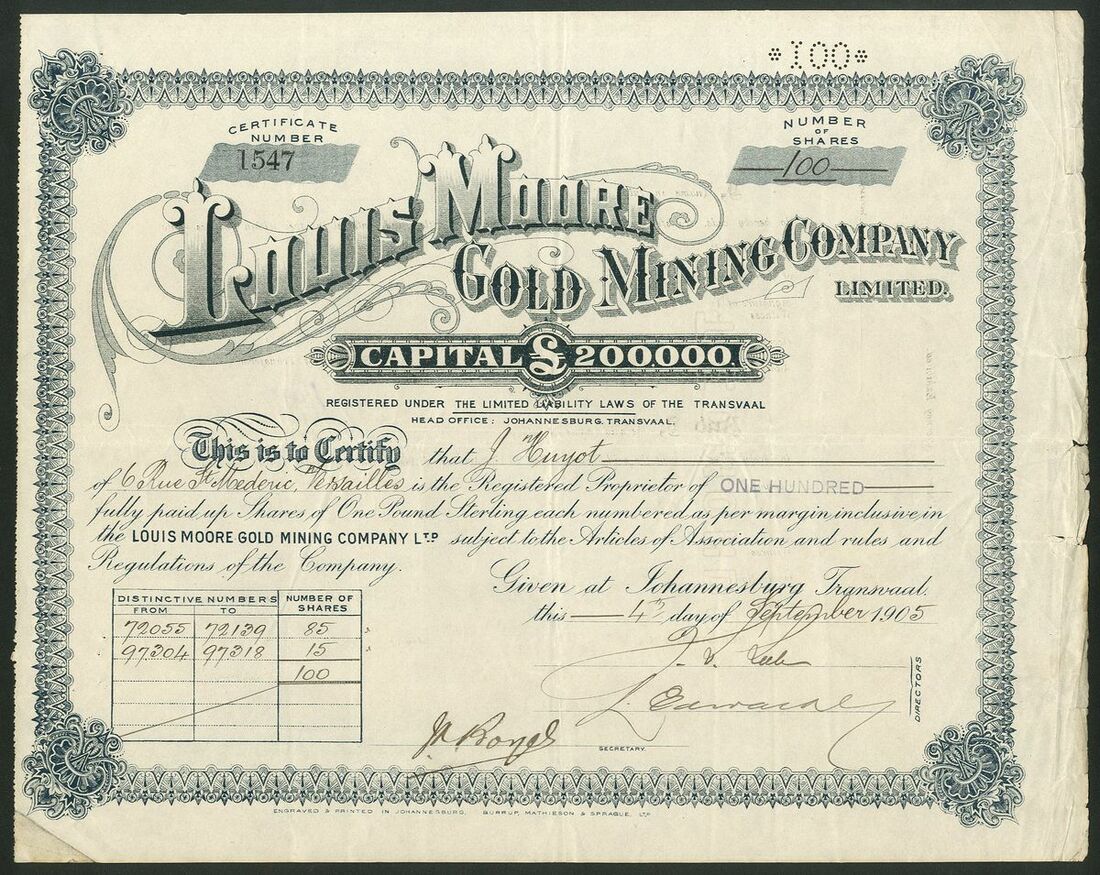 *100*
CERTIFICATE
NUMBER
1547
NUMBER
OF
SHARES
100
LOUIS MOORE
GOLD MINING COMPANY
LIMITED.
CAPITAL £ 200.000.
REGISTERED UNDER THE LIMITED LIABILITY LAWS OF THE TRANSVAAL
HEAD OFFICE: JOHANNESBURG. TRANSVAAL.
This is to Certify that J Huyot
of 6 Rue St Mederic, Versailles is the Registered Proprietor of ONE HUNDRED
fully paid up Shares of One Pound Sterling each numbered as per margin inclusive in
the LOUIS MOORE GOLD MINING COMPANY LTD subject to the Articles of Association and rules and
Regulations of the Company.
Given at Johannesburg Transvaal.
this 4th day of September 1905
DISTINCTIVE NUMBERS NUMBER OF SHARES
FROM TO
72055 72139 85
97304 97318 15
100
DIRECTORS
SECRETARY.
ENGRAVED & PRINTED IN JOHANNESBURG. BURRUP, MATHIESON & SPRAGUE, LTD